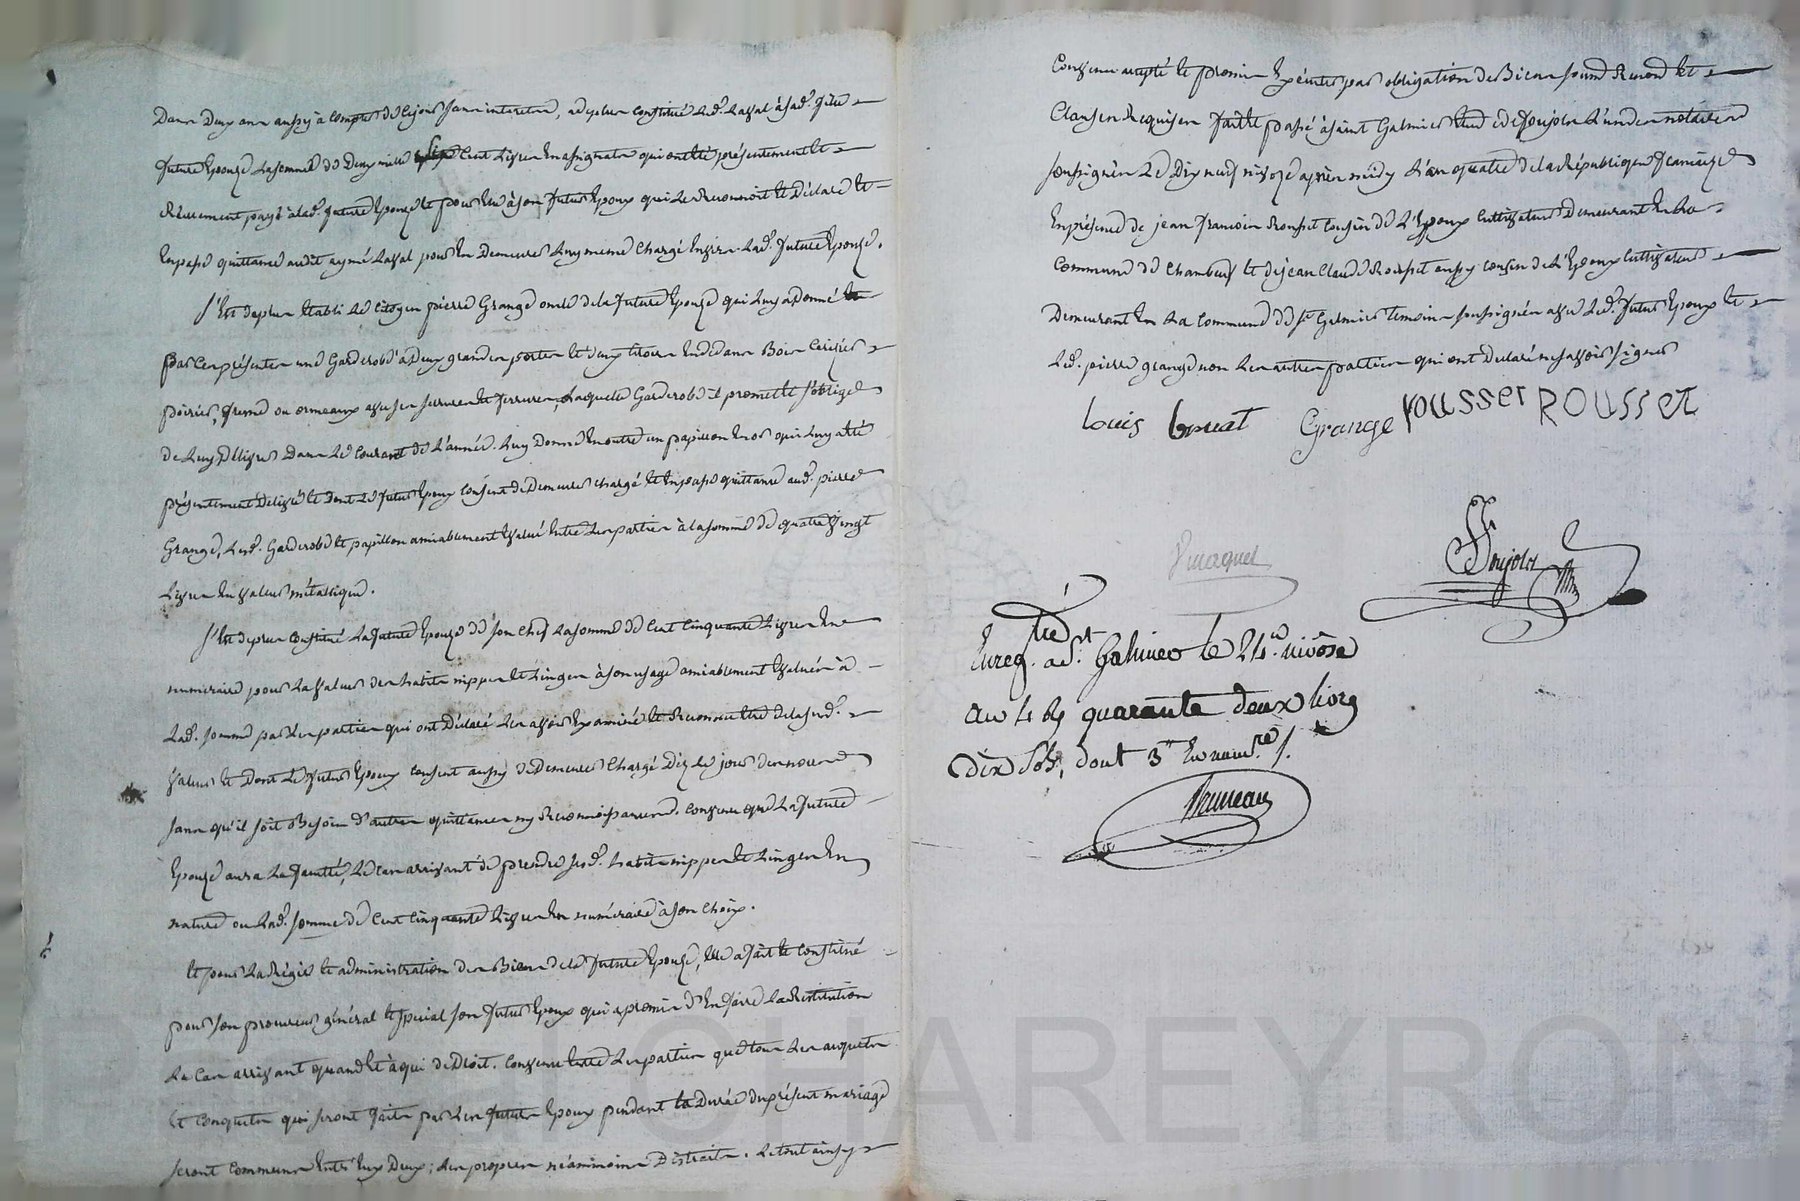 Dans deux ans aussy à compter de ce jour sans interets, a de plus constitué led. Laval à sad. fille
future Epouse la somme de deux mille six Cent Livres En assignats qui ont été présentement et
réellement payé à lad. future Epouse et pour Elle à son futur Epoux qui le reconnoit et déclare et
En passe quittance audit aymé Laval pour En demeurer Luy meme chargé Envers lad. future Epouse.
S'Est de plus Etabli le Citoyen pierre Grange oncle de la future Epouse qui Luy a donné
par Ces présentes une Garderobe à deux grandes portes et deux tiroirs En dedans Bois Cerisier
poirier, fresne ou ormeaux avec ses serrures et ferrures, laquelle Garderobe il promet et s'oblige
de Luy Délivrer Dans Le Courant de L'année. Luy donne En outre un papillon Enor qui Luy a été
présentement Délivré et dont Le futur Epoux Consent de Demeurer chargé et En passe quittance aud. pierre
Grange, lesd. Garderobe et papillon amiablement Evalué Entre Les parties à la somme de quatre Vingt
Livres En valeur métallique.
S'Est de plus Constitué La future Epouse de son Chef La somme de Cent Cinquante Livres En
numeraire pour La valeur des habits nippes et Linges à son usage amiablement Evalués à
Lad. somme par Les parties qui ont Déclaré Les avoir Examiné et Reconnu Etre de la susd.
valeur et Dont Le futur Epoux Consent aussy de Demeurer Chargé Dez le jour des noces
sans qu'il soit Besoin d'autres quittances ny Reconnoissances. Convenu que La future
Epouse aura La faculté, Le Cas arrivant de prendre sesd. habits nippes et Linges En
nature ou Lad. somme de Cent Cinquante Livres En numéraire à son Choix.
Et pour La Régie et administration des Biens de la future Epouse, Elle a fait et Constitué
pour son procureur général et special son futur Epoux qui a promis d'En faire La Restitution
Le Cas arrivant quand et à qui de Droit. Convenu Entre Les parties que tous Les acquets
et Conquets qui seront faits par Les futurs Epoux pendant la Durée du présent mariage
seront Communs Entr'Eux Deux; Les propres néanmoins Distraits. Le tout ainsy
Convenu accepté et promis Exécuter par obligation de Biens soumis Renond et
Clauses Requises fait et passé à saint Galmier Etude de foujols L'un des notaires
soussignés Le Dix neuf nivose après midy L'an quatre de la République francaise
En présence de jean francois Rousset Cousin de L'Epoux Cultivateur Demeurant En la
Commune de Chambeuf et de jean Claude Rousset aussy Cousin de L'Epoux Cultivateur
Demeurant En La Commune de St Galmier temoins soussignés avec Led. futur Epoux et
Led. pierre grange non Les autres parties qui ont Declaré ne savoir signer
Louis Grange rousset ROUSSET
foujols
Enreg.tré a St Galmier le 24 nivôse
an 4 R quarante deux livres
dix Sols, dont 3
Bruneau
CHAREYRON